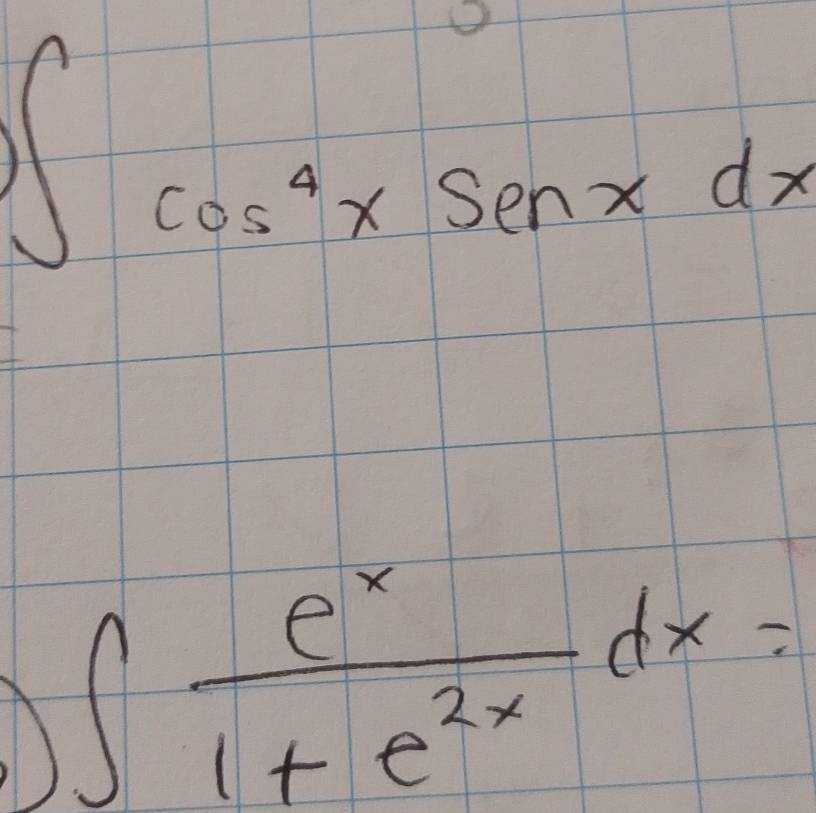 )∫ cos⁴x Senx dx
)∫ eˣ/(1 + e²ˣ) dx =